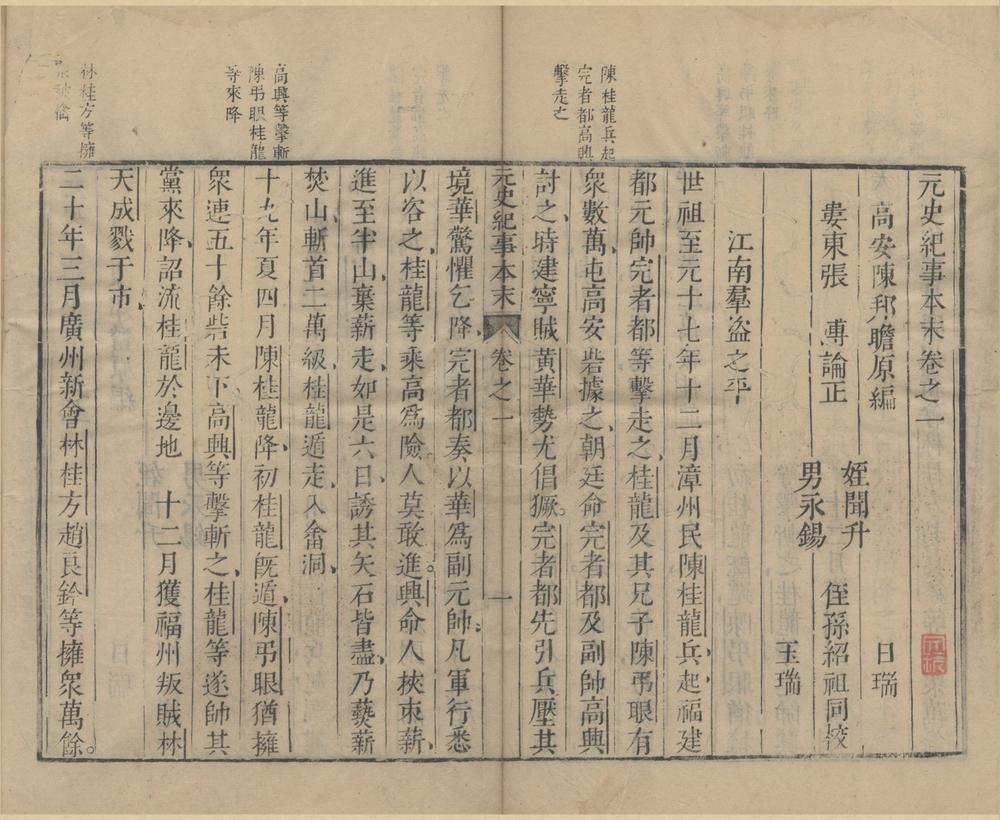 元史紀事本末卷之一
高安陳邦瞻原編
婁東張 溥論正
姪聞升
男永錫
侄孫紹祖同校
日瑞
玉瑞
江南羣盗之平
陳桂龍兵起
完者都高興
擊走之
世祖至元十七年十二月漳州民陳桂龍兵起福建
都元帥完者都等擊走之桂龍及其兄子陳弔眼有
衆數萬屯高安砦據之朝廷命完者都及副帥高興
討之時建寧賊黃華勢尤倡獗完者都先引兵壓其
元史紀事本末 卷之一 一
境華驚懼乞降完者都奏以華爲副元帥凡軍行悉
以咨之桂龍等乘高爲險人莫敢進興命人挾束薪
進至半山棄薪走如是六日誘其矢石皆盡乃爇薪
焚山斬首二萬級桂龍遁走入畬洞
高興等擊斬
陳弔眼桂龍
等來降
十九年夏四月陳桂龍降初桂龍既遁陳弔眼猶擁
衆連五十餘砦未下高興等擊斬之桂龍等遂帥其
黨來降詔流桂龍於邊地 十二月獲福州叛賊林
天成戮于市
林桂方等擁
二十年三月廣州新會林桂方趙良鈐等擁衆萬餘